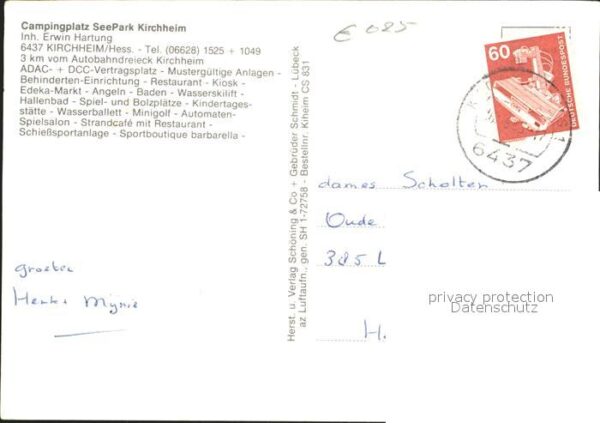 Campingplatz SeePark Kirchheim
Inh. Erwin Hartung
6437 KIRCHHEIM/Hess. - Tel. (06628) 1525 + 1049
3 km vom Autobahndreieck Kirchheim
ADAC- + DCC-Vertragsplatz - Mustergültige Anlagen -
Behinderten-Einrichtung - Restaurant - Kiosk -
Edeka-Markt - Angeln - Baden - Wasserskilift -
Hallenbad - Spiel- und Bolzplätze - Kindertages-
stätte - Wasserballett - Minigolf - Automaten-
Spielsalon - Strandcafé mit Restaurant -
Schießsportanlage - Sportboutique barbarella -
groeten
Henk + Mynie
Herst. u. Verlag Schöning & Co + Gebrüder Schmidt · Lübeck
az Luftaufn., gen. SH 1-72758 - Bestellnr. Kiheim CS 831
€ 085
60
DEUTSCHE BUNDESPOST
6437
dames Scholten
Oude
385 L
H.
privacy protection
Datenschutz